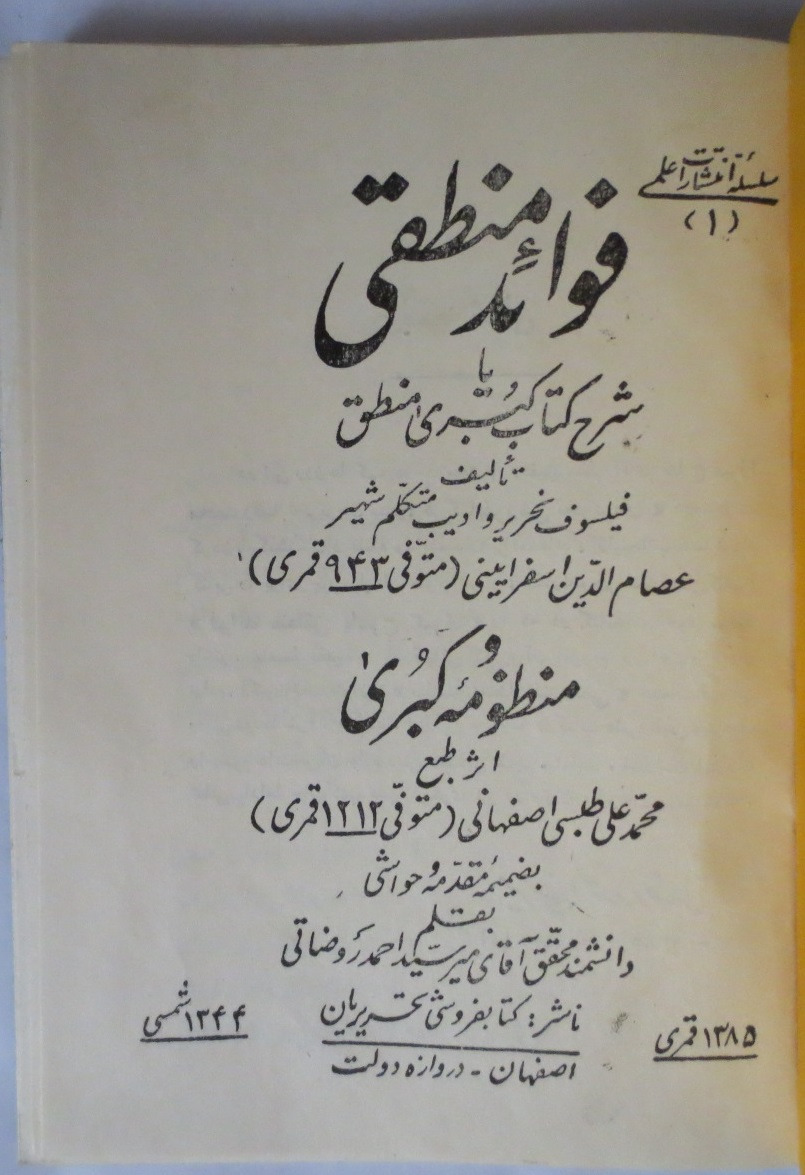 سلسلهٔ انتشارات علمی
(۱)
فوائد منطقی
یا
شرح کتاب کُبری منطق
تألیف
فیلسوف نحریر و ادیب متکلّم شهیر
عصام الدّین اسفراینی (متوّفی ۹۴۳ قمری)
و
منظومهٔ کُبریٰ
اثر طبع
محمّد علی طلبسی اصفهانی (متوّفی ۱۲۱۲ قمری)
بضمیمهٔ مقدّمه و حواشی
بقلم
دانشمند محقّق آقای میر سیّد احمد رَوضاتی
ناشر: کتابفروشی تحریریان
اصفهان - دروازه دولت
۱۳۸۵ قمری
۱۳۴۴ شمسی